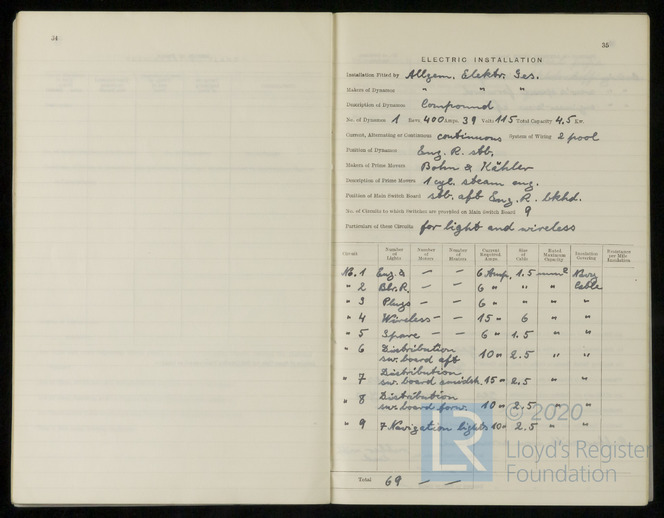 34
35
ELECTRIC INSTALLATION
Installation Fitted by Allgem. Elektr. Ges.
Makers of Dynamos " " "
Description of Dynamos Compound
No. of Dynamos 1 Revs. 400 Amps. 39 Volts 115 Total Capacity 4.5 Kw.
Current, Alternating or Continuous continuous System of Wiring 2 pool
Position of Dynamos Eng. R. stb.
Makers of Prime Movers Bohn & Kähler
Description of Prime Movers 1 cyl. steam eng.
Position of Main Switch Board stb. aft Eng. R. bkhd.
No. of Circuits to which Switches are provided on Main Switch Board 9
Particulars of these Circuits for light and wireless
Circuit Number of Lights Number of Motors Number of Heaters Current Required Amps. Size of Cable Rated Maximum Capacity Insulation Covering Resistance per Mile Insulation
No. 1 Eng. & — — 6 Amp. 1.5 mm² Navy
" 2 Blr. R. — — 6 " " " Cable
" 3 Plugs — — 6 " " "
" 4 Wireless — — 15 " 6 " "
" 5 Spare — — 6 " 1.5 " "
" 6 Distribution
sw. board aft 10 " 2.5 " "
" 7 Distribution
sw. board amidsh. 15 " 2.5 " "
" 8 Distribution
sw. board forw. 10 " 2.5 " "
" 9 7 Navigation lights 10 " 2.5 " "
Total 69 — —
LR © 2020
Lloyd's Register
Foundation